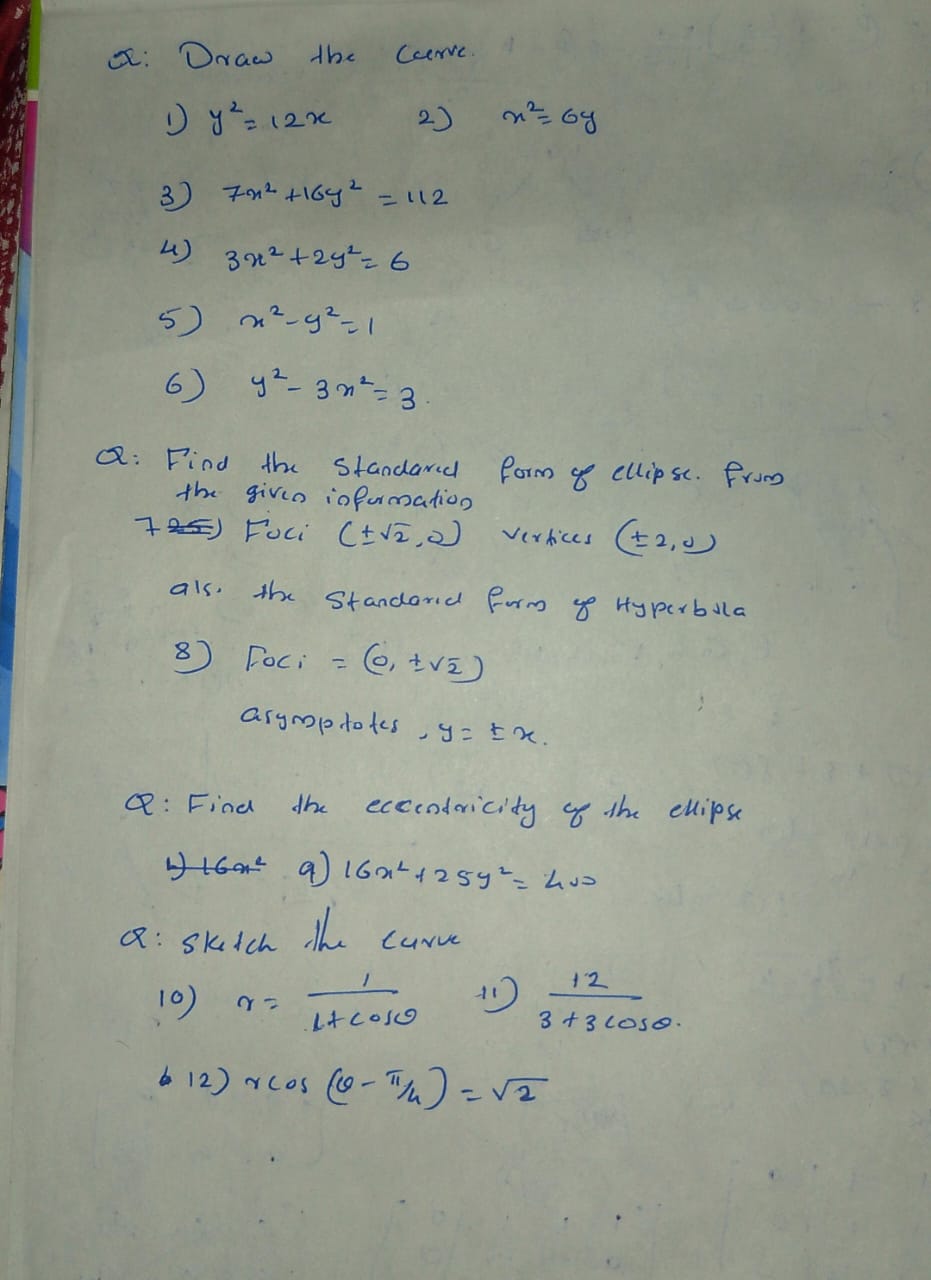 Q: Draw the Curve.
1) y² = 12x 2) x² = 6y
3) 7x² + 16y² = 112
4) 3x² + 2y² = 6
5) x² - y² = 1
6) y² - 3x² = 3.
Q: Find the Standared form of ellipse. from
the given information
7 25) Foci (±√2, 0) vertices (±2, 0)
als. the Standared form of Hyperbola
8) Foci = (0, ±√2)
asymptotes, y = ±x.
Q: Find the eccentricity of the ellipse
1) 16x² 9) 16x² + 25y² = 400
Q: Sketch the curve
10) r = 1/(1 + cosθ) 11) 12/(3 + 3cosθ).
12) rcos(θ - π/4) = √2